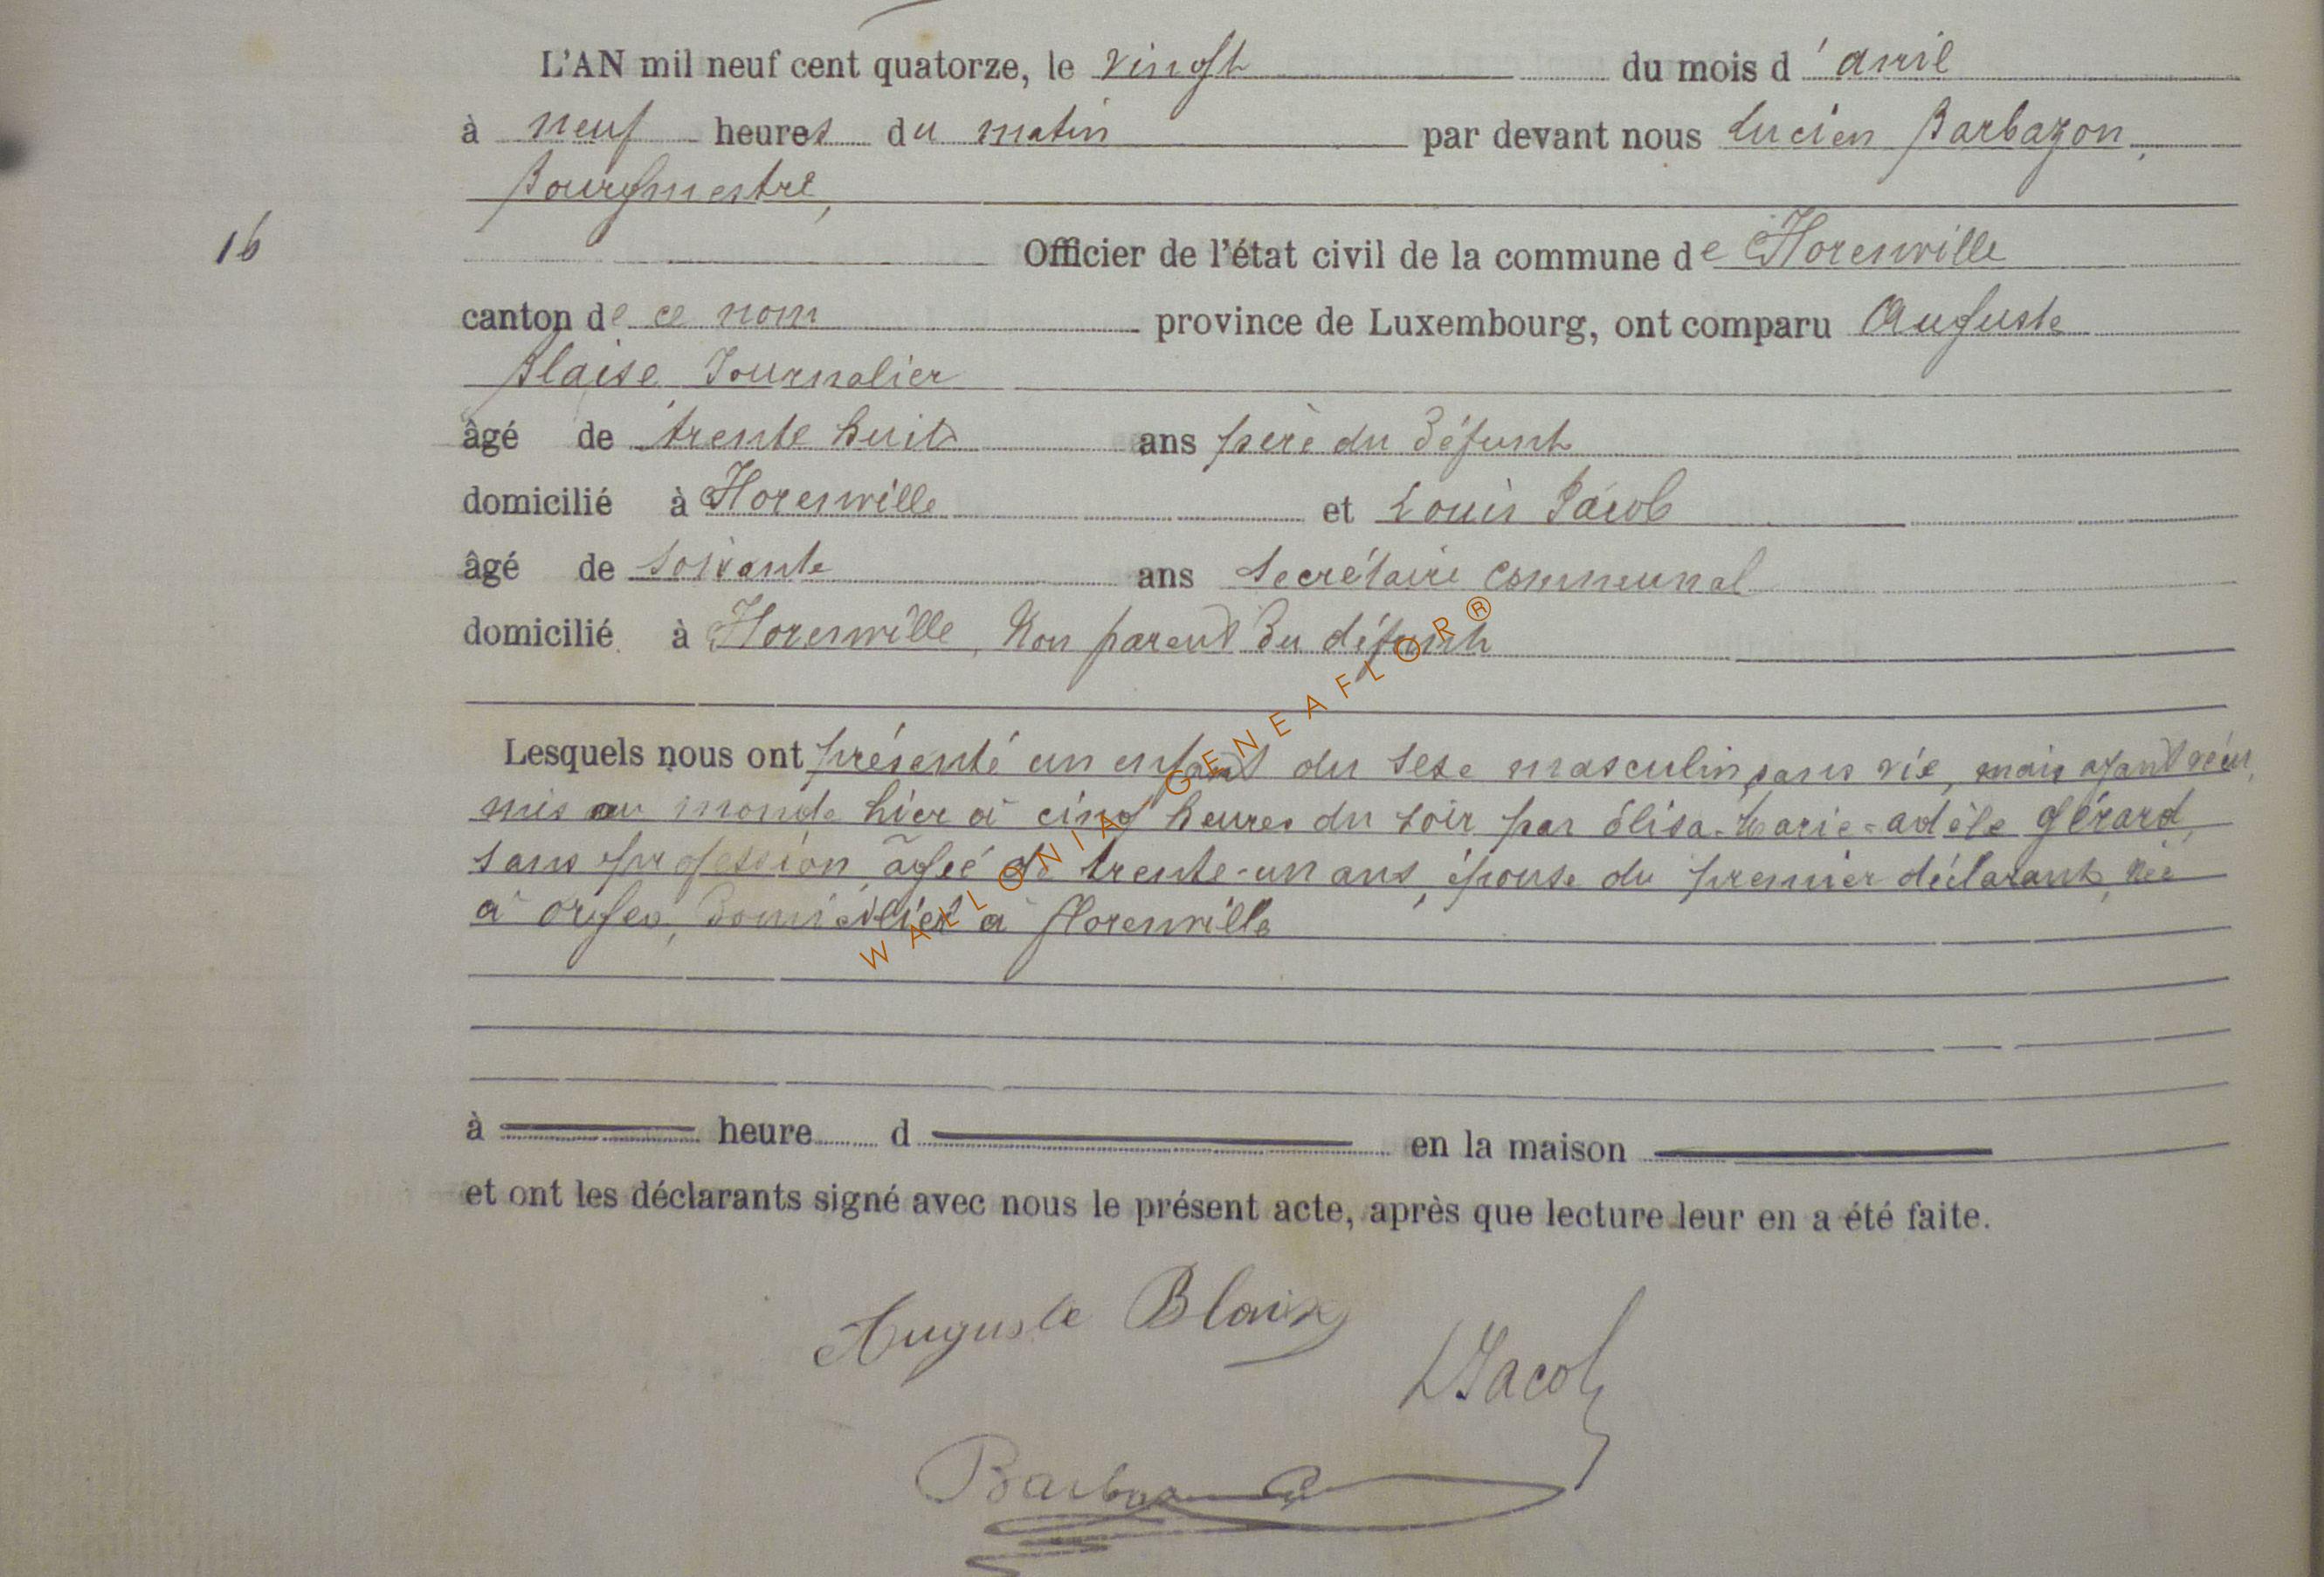 L'AN mil neuf cent quatorze, le vingt du mois d'avril
à neuf heures du matin par devant nous Lucien Barbazon,
Bourgmestre,
16
Officier de l'état civil de la commune de Florenville
canton de ce nom province de Luxembourg, ont comparu Auguste
Blaise Journalier
âgé de trente huit ans père du défunt
domicilié à Florenville et Louis Jacob
âgé de soixante ans secrétaire communal
domicilié à Florenville, Non parent du défunt
Lesquels nous ont présenté un enfant du sexe masculin sans vie, mais ayant vécu,
mis au monde hier à cinq heures du soir par élisa-Marie-adèle gérard,
sans profession, âgée de trente-un ans, épouse du premier déclarant, née
à orgeo, domiciliés à florenville
à heure d en la maison
et ont les déclarants signé avec nous le présent acte, après que lecture leur en a été faite.
Auguste Blaise
LJacob
Barbazon
WALLONIA GENEAFLOR®